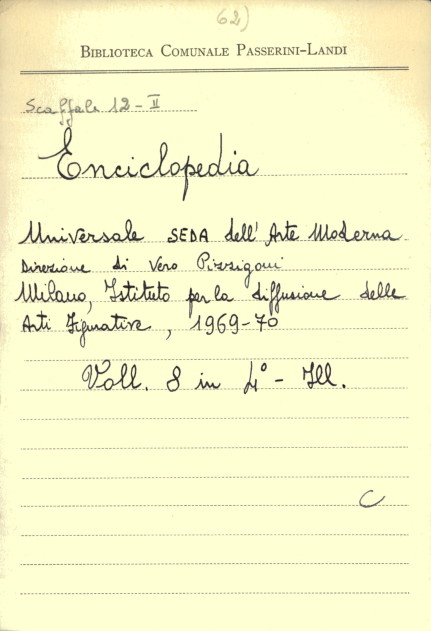 62)
BIBLIOTECA COMUNALE PASSERINI-LANDI
Scaffale 12-II
Enciclopedia
Universale SEDA dell'Arte Moderna
Direzione di Vero Pizzigoni
Milano, Istituto per la diffusione delle
Arti Figurative, 1969-70
Voll. 8 in 4° - Ill.
C